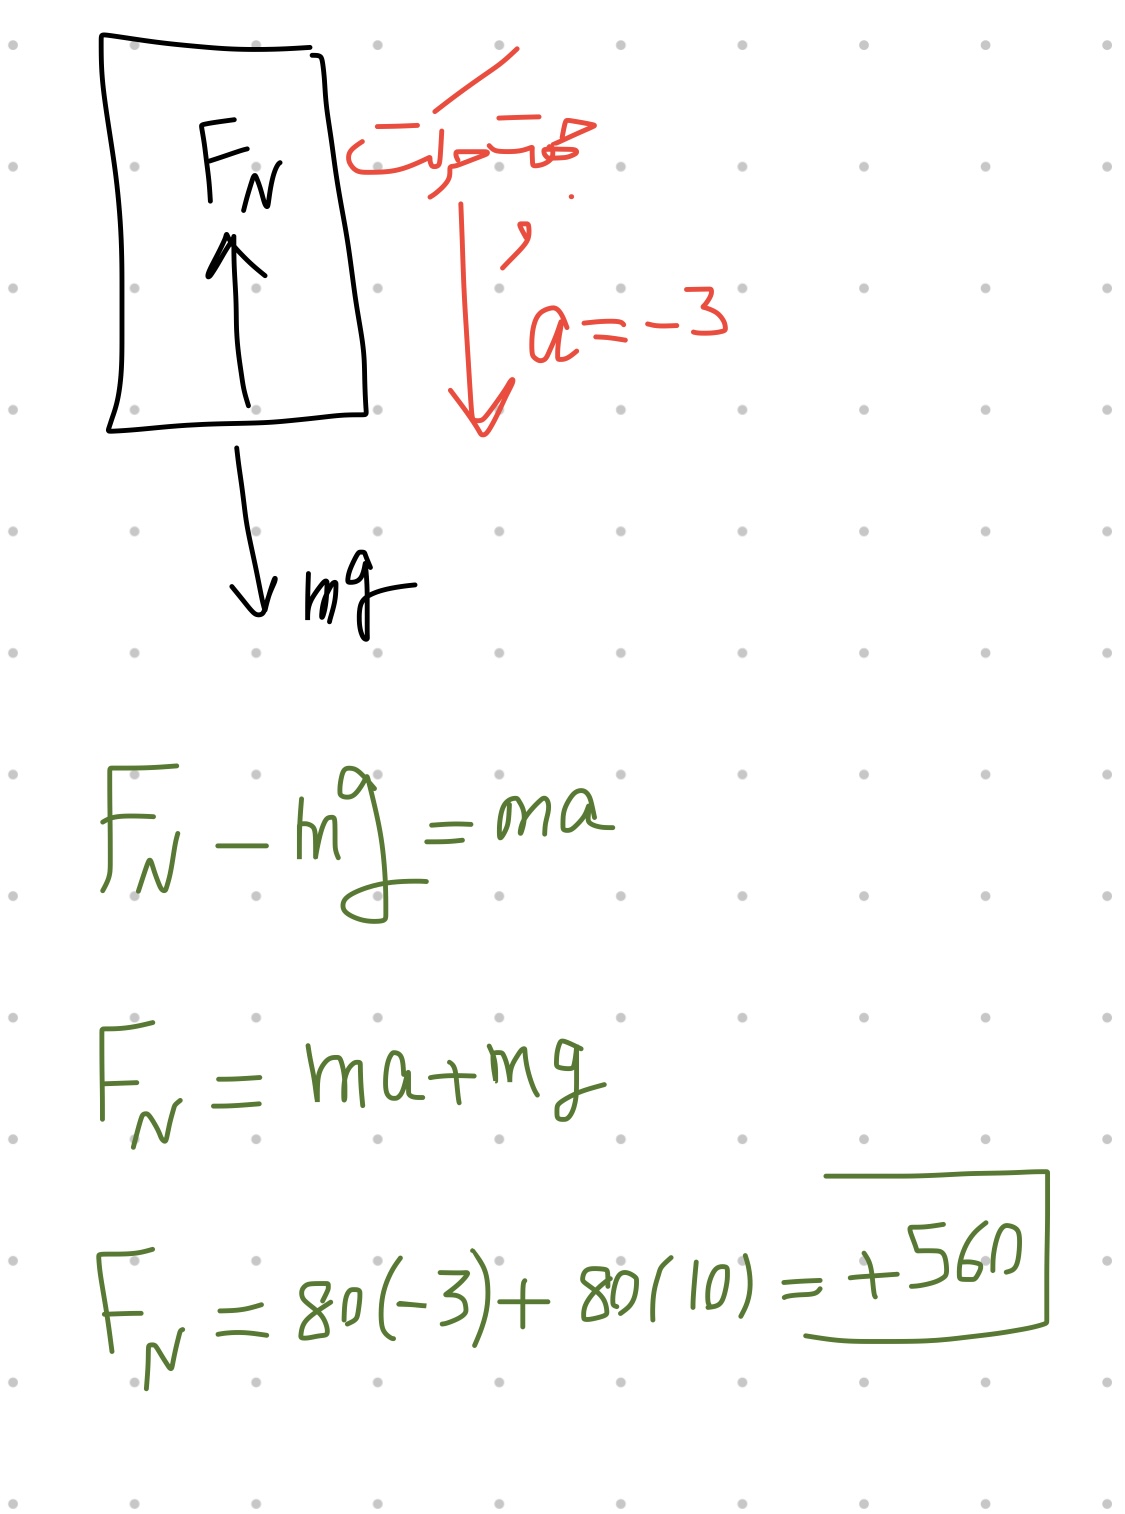 F_N
a = -3
mg
F_N - mg = ma
F_N = ma + mg
F_N = 80(-3) + 80(10) = +560